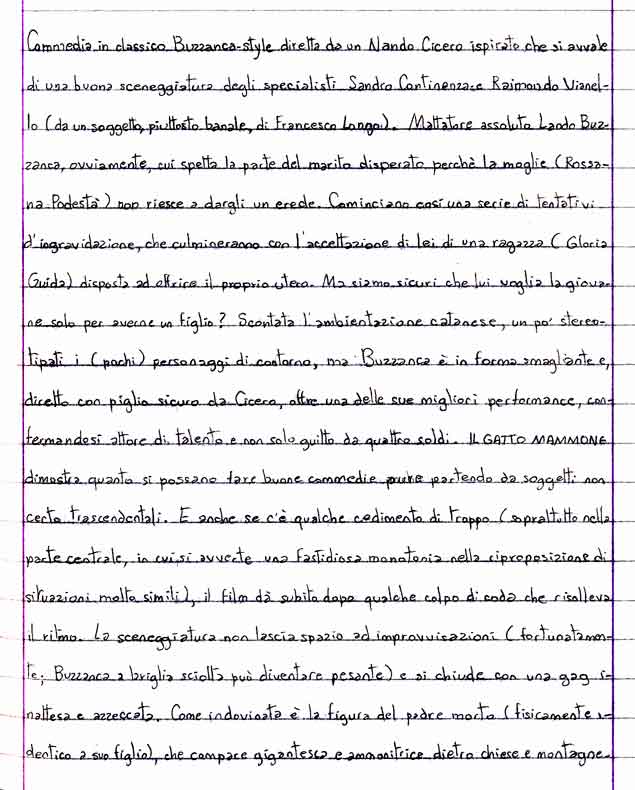 Commedia in classico Buzzanca-style diretta da un Nando Cicero ispirato che si avvale
di una buona sceneggiatura degli specialisti Sandro Continenza e Raimondo Vianel-
lo (da un soggetto, piuttosto banale, di Francesco Longo). Mattatore assoluto Lando Buz-
zanca, ovviamente, cui spetta la parte del marito disperato perchè la moglie (Rossa-
na Podestà) non riesce a dargli un erede. Cominciano così una serie di tentativi
d'ingravidazione, che culmineranno con l'accettazione di lei di una ragazza (Gloria
Guida) disposta ad offrire il proprio utero. Ma siamo sicuri che lui voglia la giova-
ne solo per averne un figlio? Scontata l'ambientazione catanese, un po' stereo-
tipati i (pochi) personaggi di contorno, ma Buzzanca è in forma smagliante e,
diretto con piglio sicuro da Cicero, offre una delle sue migliori performance, con-
fermandosi attore di talento e non solo guitto da quattro soldi. IL GATTO MAMMONE
dimostra quanto si possano fare buone commedie pure partendo da soggetti non
certo trascendentali. E anche se c'è qualche cedimento di troppo (soprattutto nella
parte centrale, in cui si avverte una fastidiosa monotonia nella riproposizione di
situazioni molto simili), il film dà subito dopo qualche colpo di coda che risolleva
il ritmo. La sceneggiatura non lascia spazio ad improvvisazioni (fortunatamen-
te; Buzzanca a briglia sciolta può diventare pesante) e si chiude con una gag i-
nattesa e azzeccata. Come indovinata è la figura del padre morto (fisicamente i-
dentico a suo figlio), che compare gigantesca e ammonitrice dietro chiese e montagne.